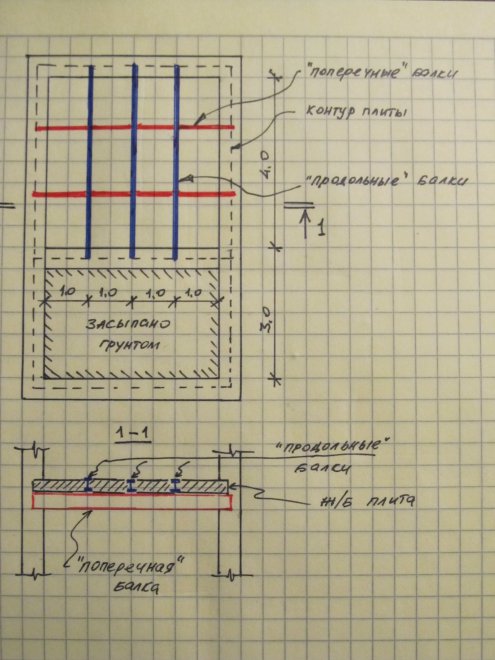 "поперечные" балки
контур плиты
4,0
"продольные" балки
1
1,0 1,0 1,0 1,0
засыпано
грунтом
3,0
1-1
"продольные"
балки
ж/б плита
"поперечная"
балка